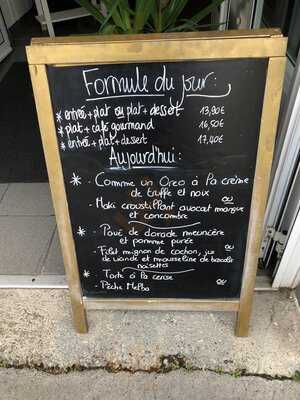 Formule du jour:
* entrée + plat ou plat + dessert 13,90€
* plat + café gourmand 16,50€
* entrée + plat + dessert 17,40€
Aujourd'hui:
* - Comme un Oreo à la crème
de truffe et noix
ou
- Maki croustillant avocat mangue
et concombre
* - Pavé de dorade meunière
et pomme purée
ou
- Filet mignon de cochon, jus
de viande et mousseline de brocolis
noisettes
* - Tarte à la cerise
ou
- Pêche Melba